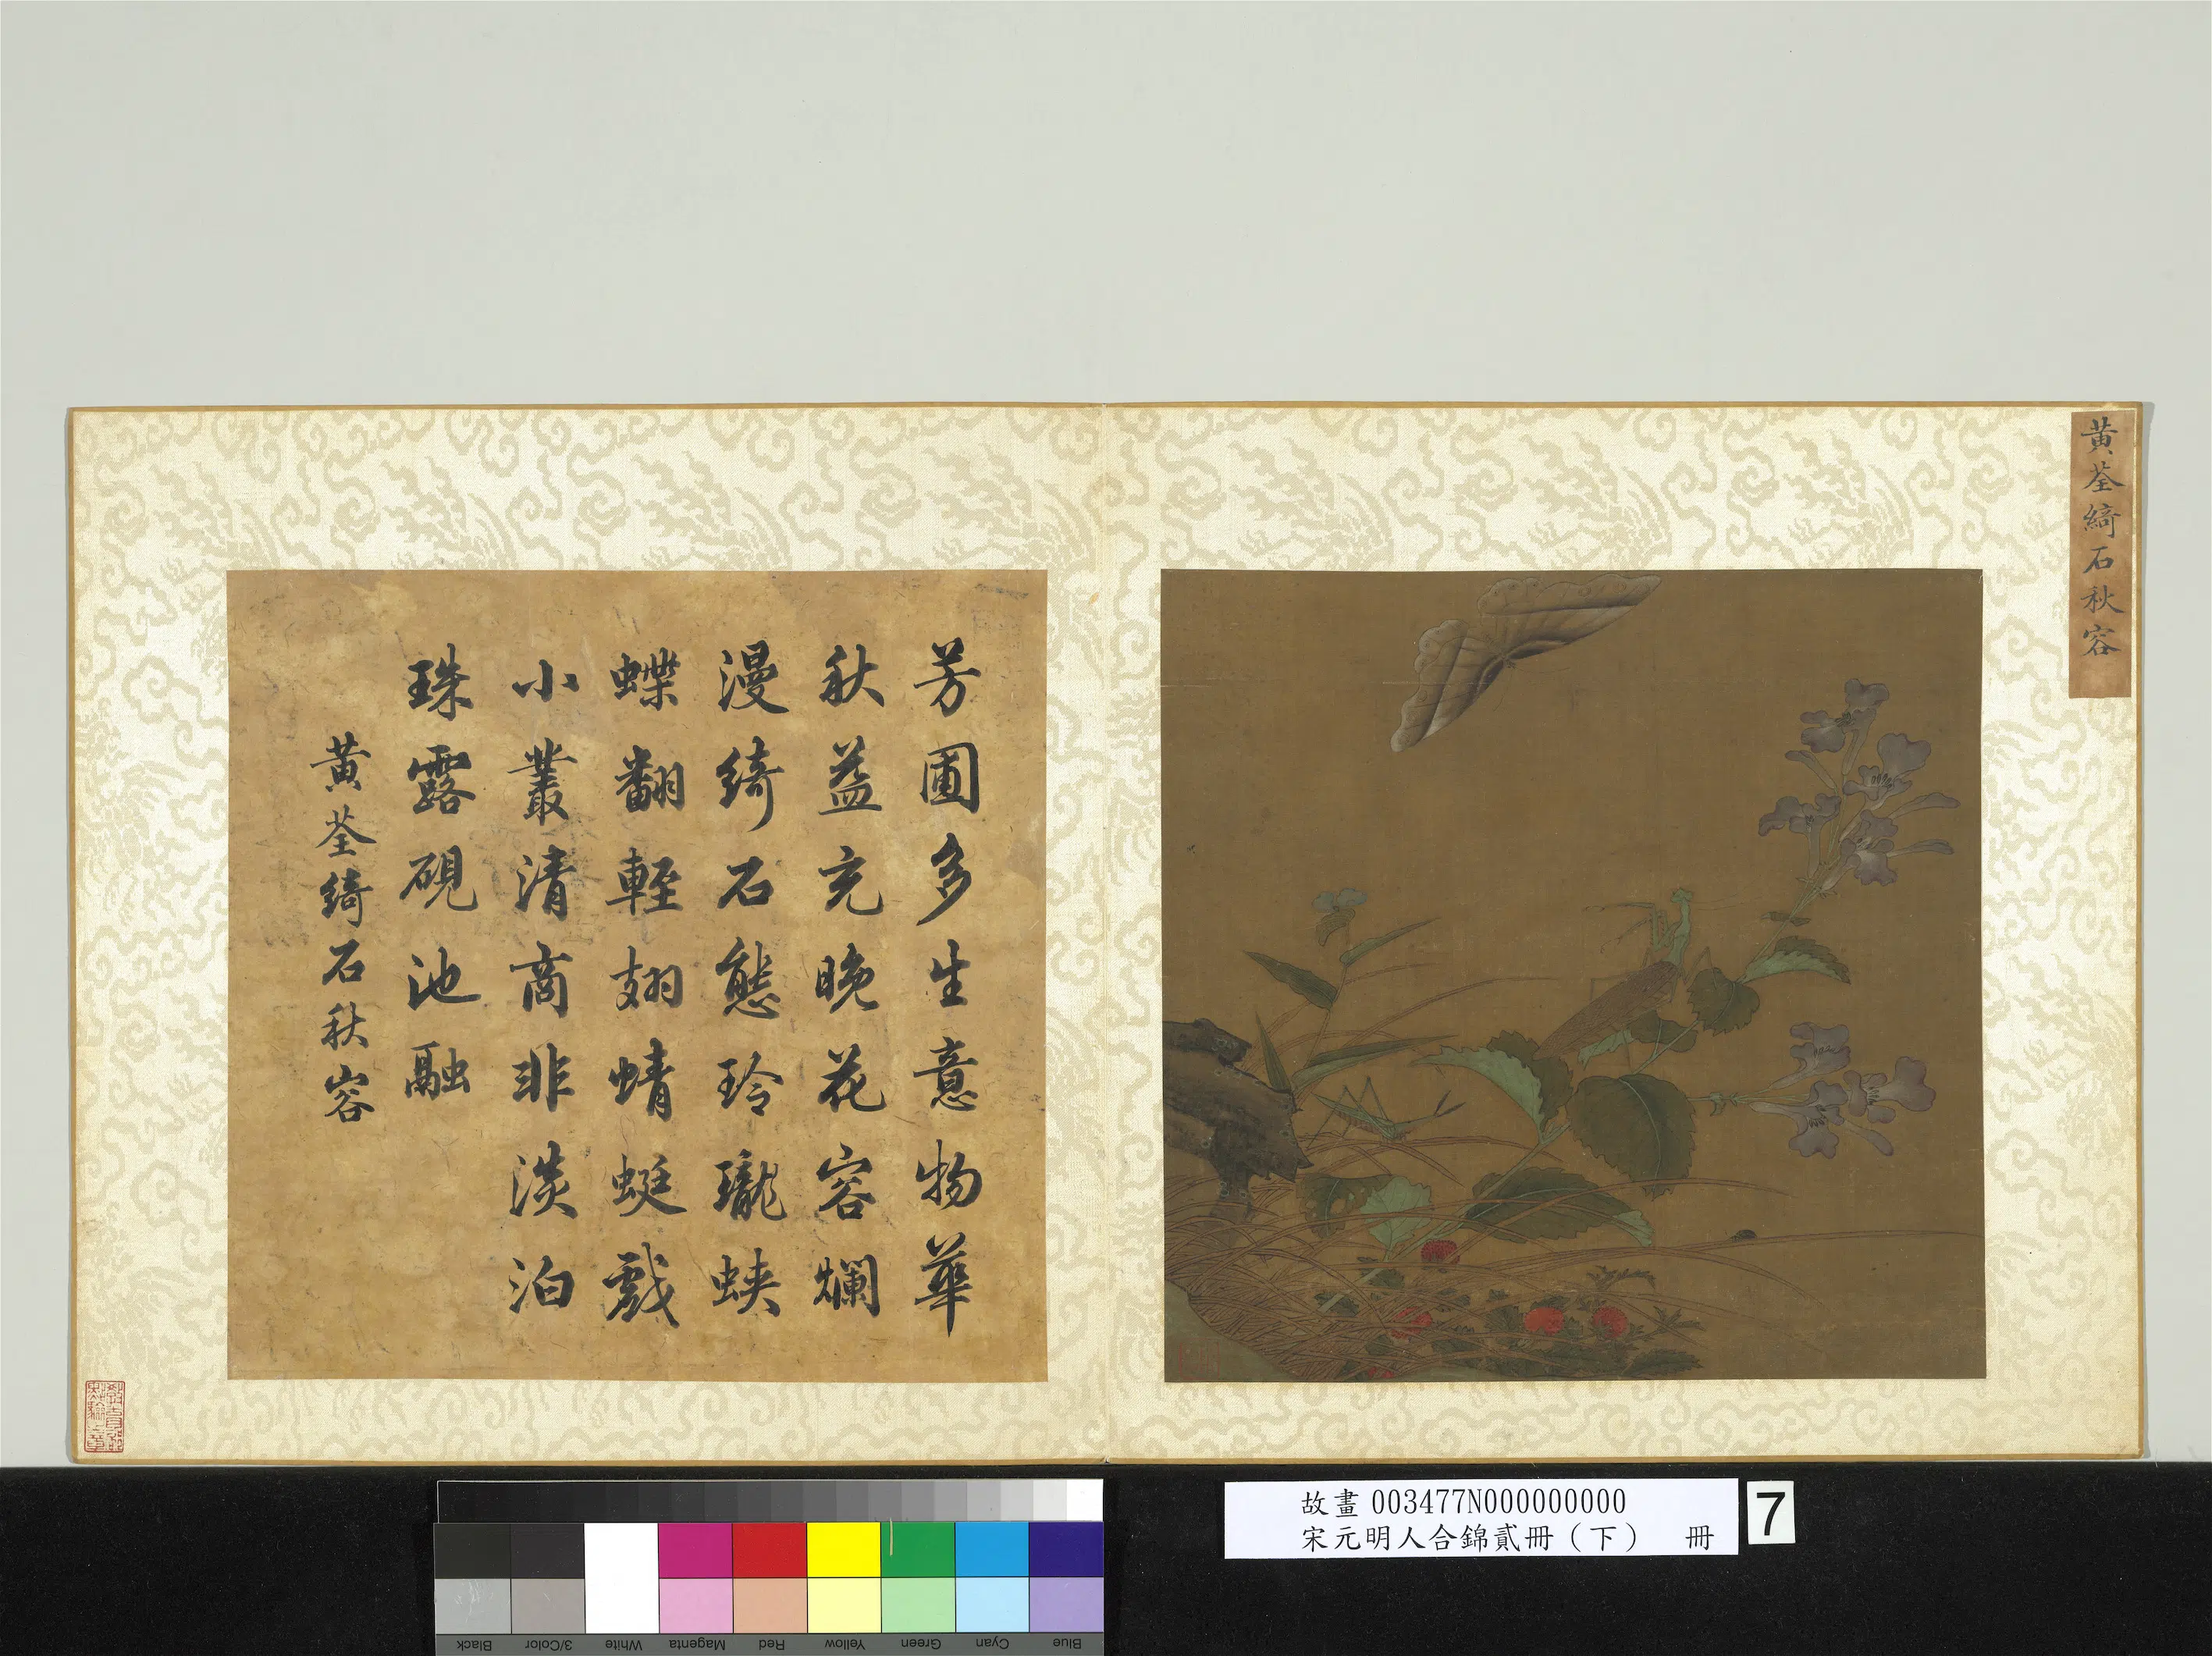 黃荃綺石秋容
芳圃多生意物華
秋益充晚花容爛
漫綺石態玲瓏蛺
蝶翻輕翅蜻蜓戲
小叢清商非淡泊
珠露硯池融
黃荃綺石秋容
故畫003477N000000000
宋元明人合錦貳冊(下) 冊
7
Black
3/Color
White
Magenta
Red
Yellow
Green
Cyan
Blue